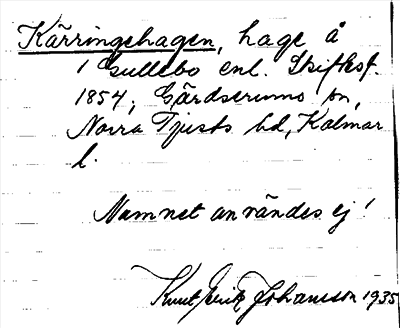 Käringehagen, hage å
1 Gullebo enl. Skiftesf.
1854, Gärdserums sn,
Norra Tjusts hd, Kalmar
l.
Namnet användes ej!
Knut Eritz Johansson 1935